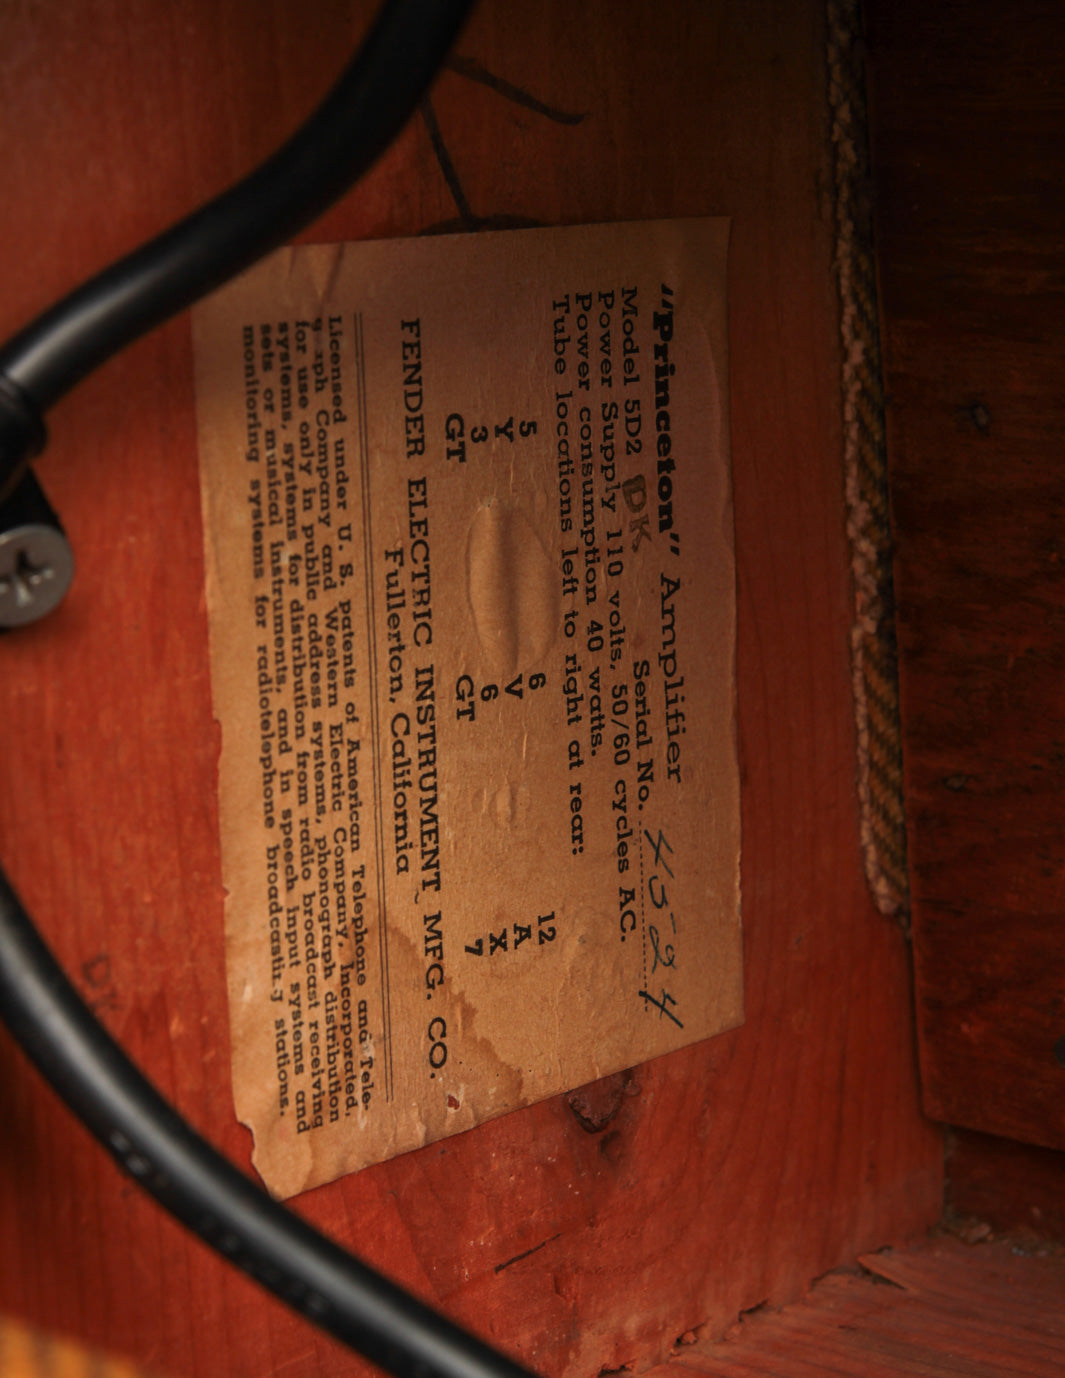 "Princeton" Amplifier
Model 5D2 DK Serial No. 4524
Power Supply 110 volts, 50/60 cycles AC.
Power consumption 40 watts.
Tube locations left to right at rear:
5 6 12
Y V A
3 6 X
GT GT 7
FENDER ELECTRIC INSTRUMENT MFG. CO.
Fullerton, California
Licensed under U. S. patents of American Telephone and Tele-
graph Company and Western Electric Company, Incorporated,
for use only in public address systems, phonograph distribution
systems, systems for distribution from radio broadcast receiving
sets or musical instruments, and in speech input systems and
monitoring systems for radiotelephone broadcasting stations.
DK